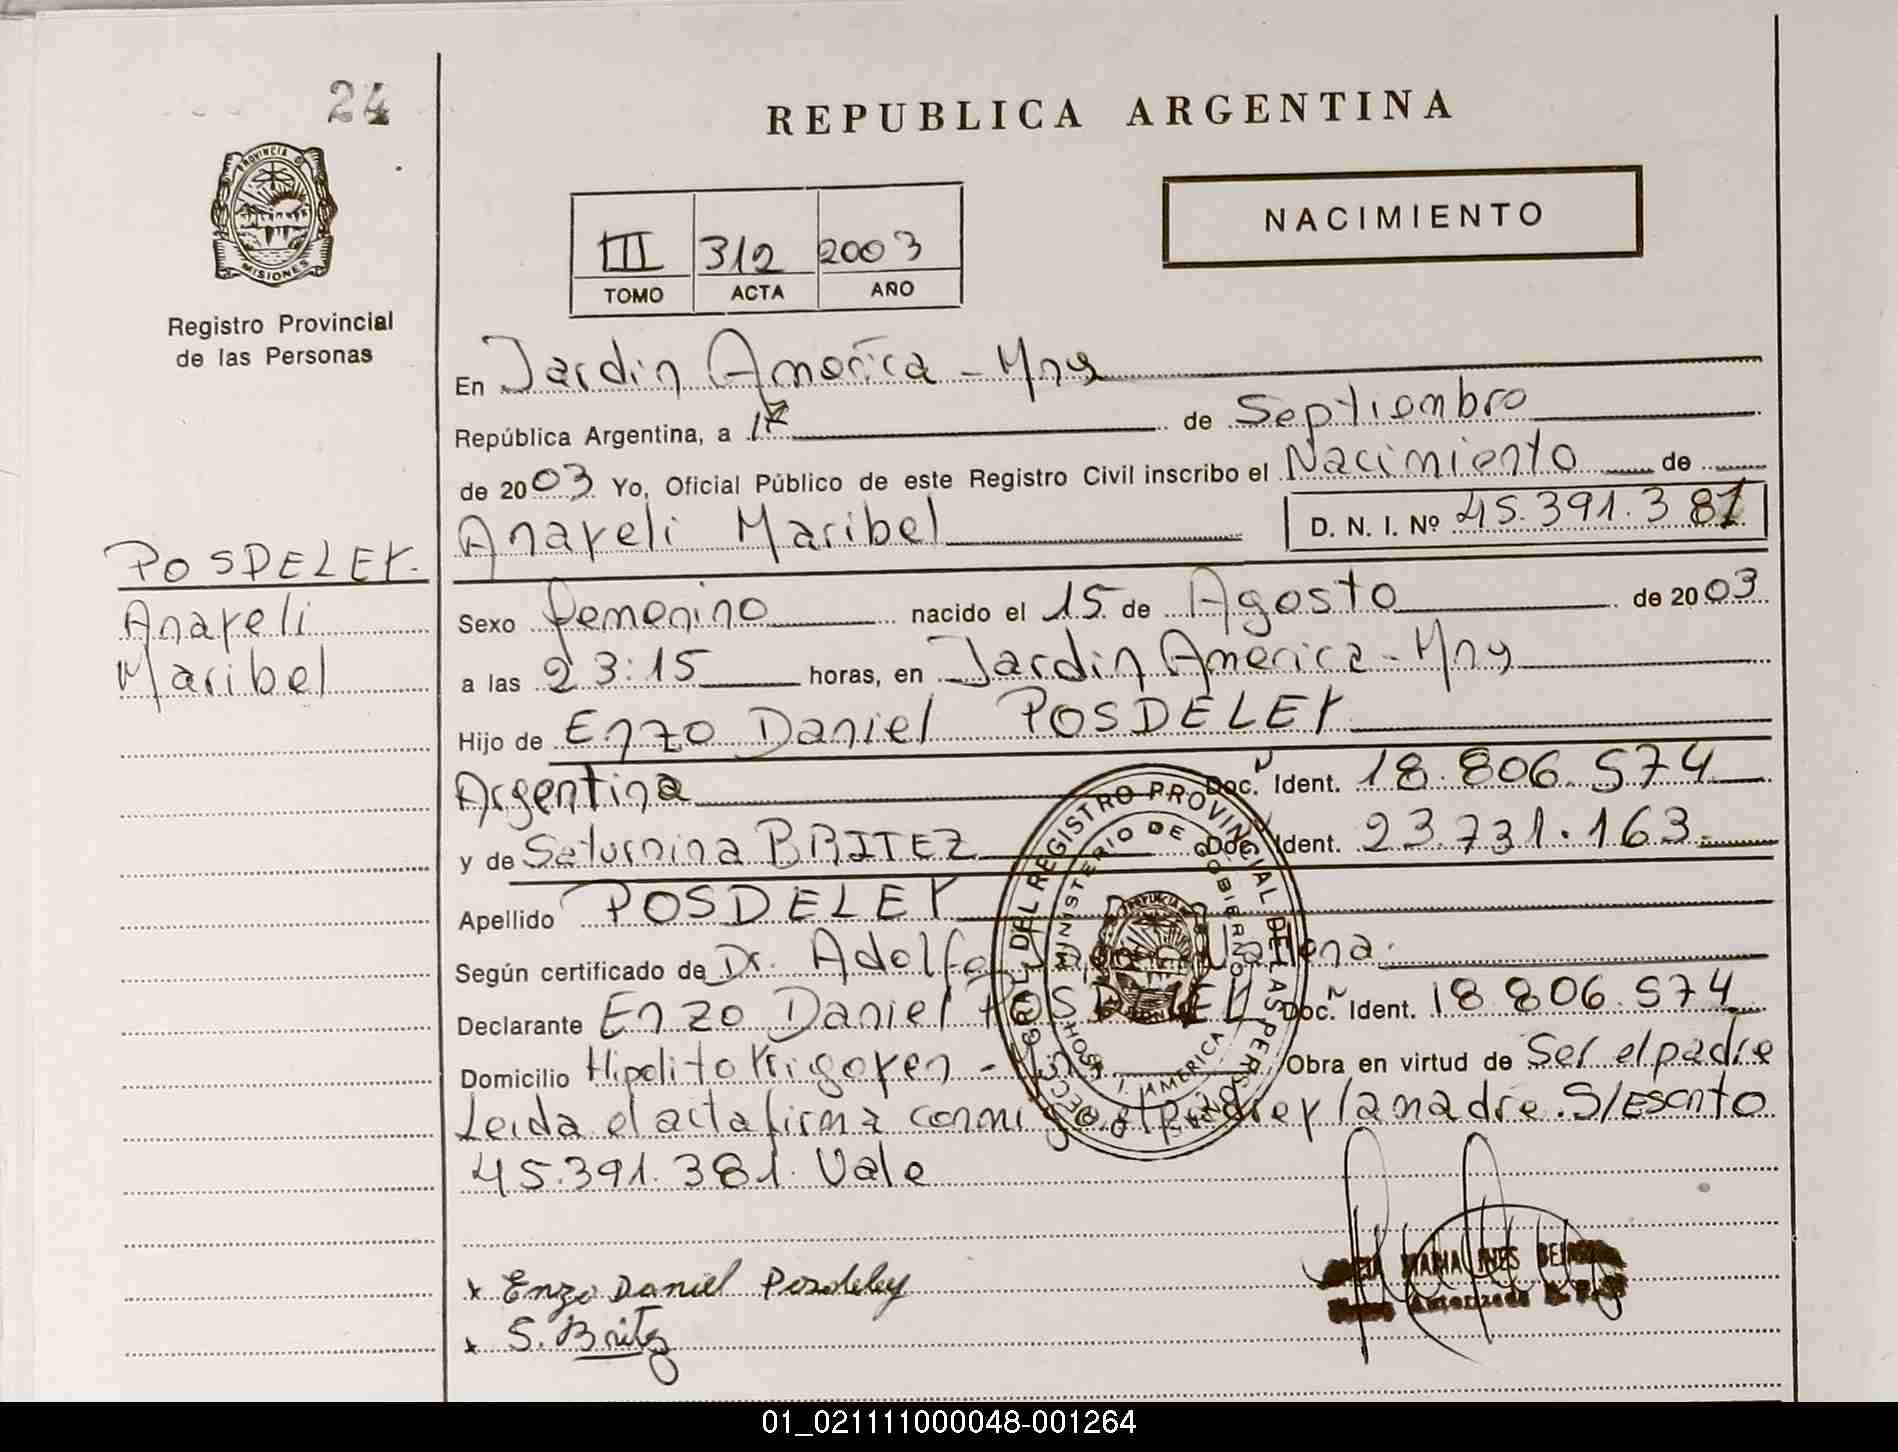 24
REPUBLICA ARGENTINA
PROVINCIA D
MISIONES
NACIMIENTO
III 312 2003
TOMO ACTA AÑO
Registro Provincial
de las Personas
En Jardin America - Mnes
República Argentina, a 17 de Septiembre
de 2003 Yo, Oficial Público de este Registro Civil inscribo el Nacimiento de
Anayeli Maribel D. N. I. Nº 45.391.381
POSDELEY.
Anayeli
Maribel
Sexo femenino nacido el 15 de Agosto de 2003
a las 23:15 horas, en Jardin America - Mnes
Hijo de Enzo Daniel POSDELEY
Argentina Doc. Ident. 18.806.574
y de Saturnina BRITEZ Doc. Ident. 23.731.163.
Apellido POSDELEY
Según certificado de Dr. Adolfo
Declarante Enzo Daniel POSDELEY Doc. Ident. 18.806.574
Domicilio Hipolito Yrigoyen - Obra en virtud de Ser el padre
Leida el acta firma conmigo el padre y la madre. S/Escrito
45.391.381. Vale
DEL REGISTRO PROVINCIAL DE LAS PERSONAS
MINISTERIO DE GOBIERNO
AMERICA
x Enzo Daniel Posdeley
x S. Britez
MARIA INES
Autorizada
01_021111000048-001264